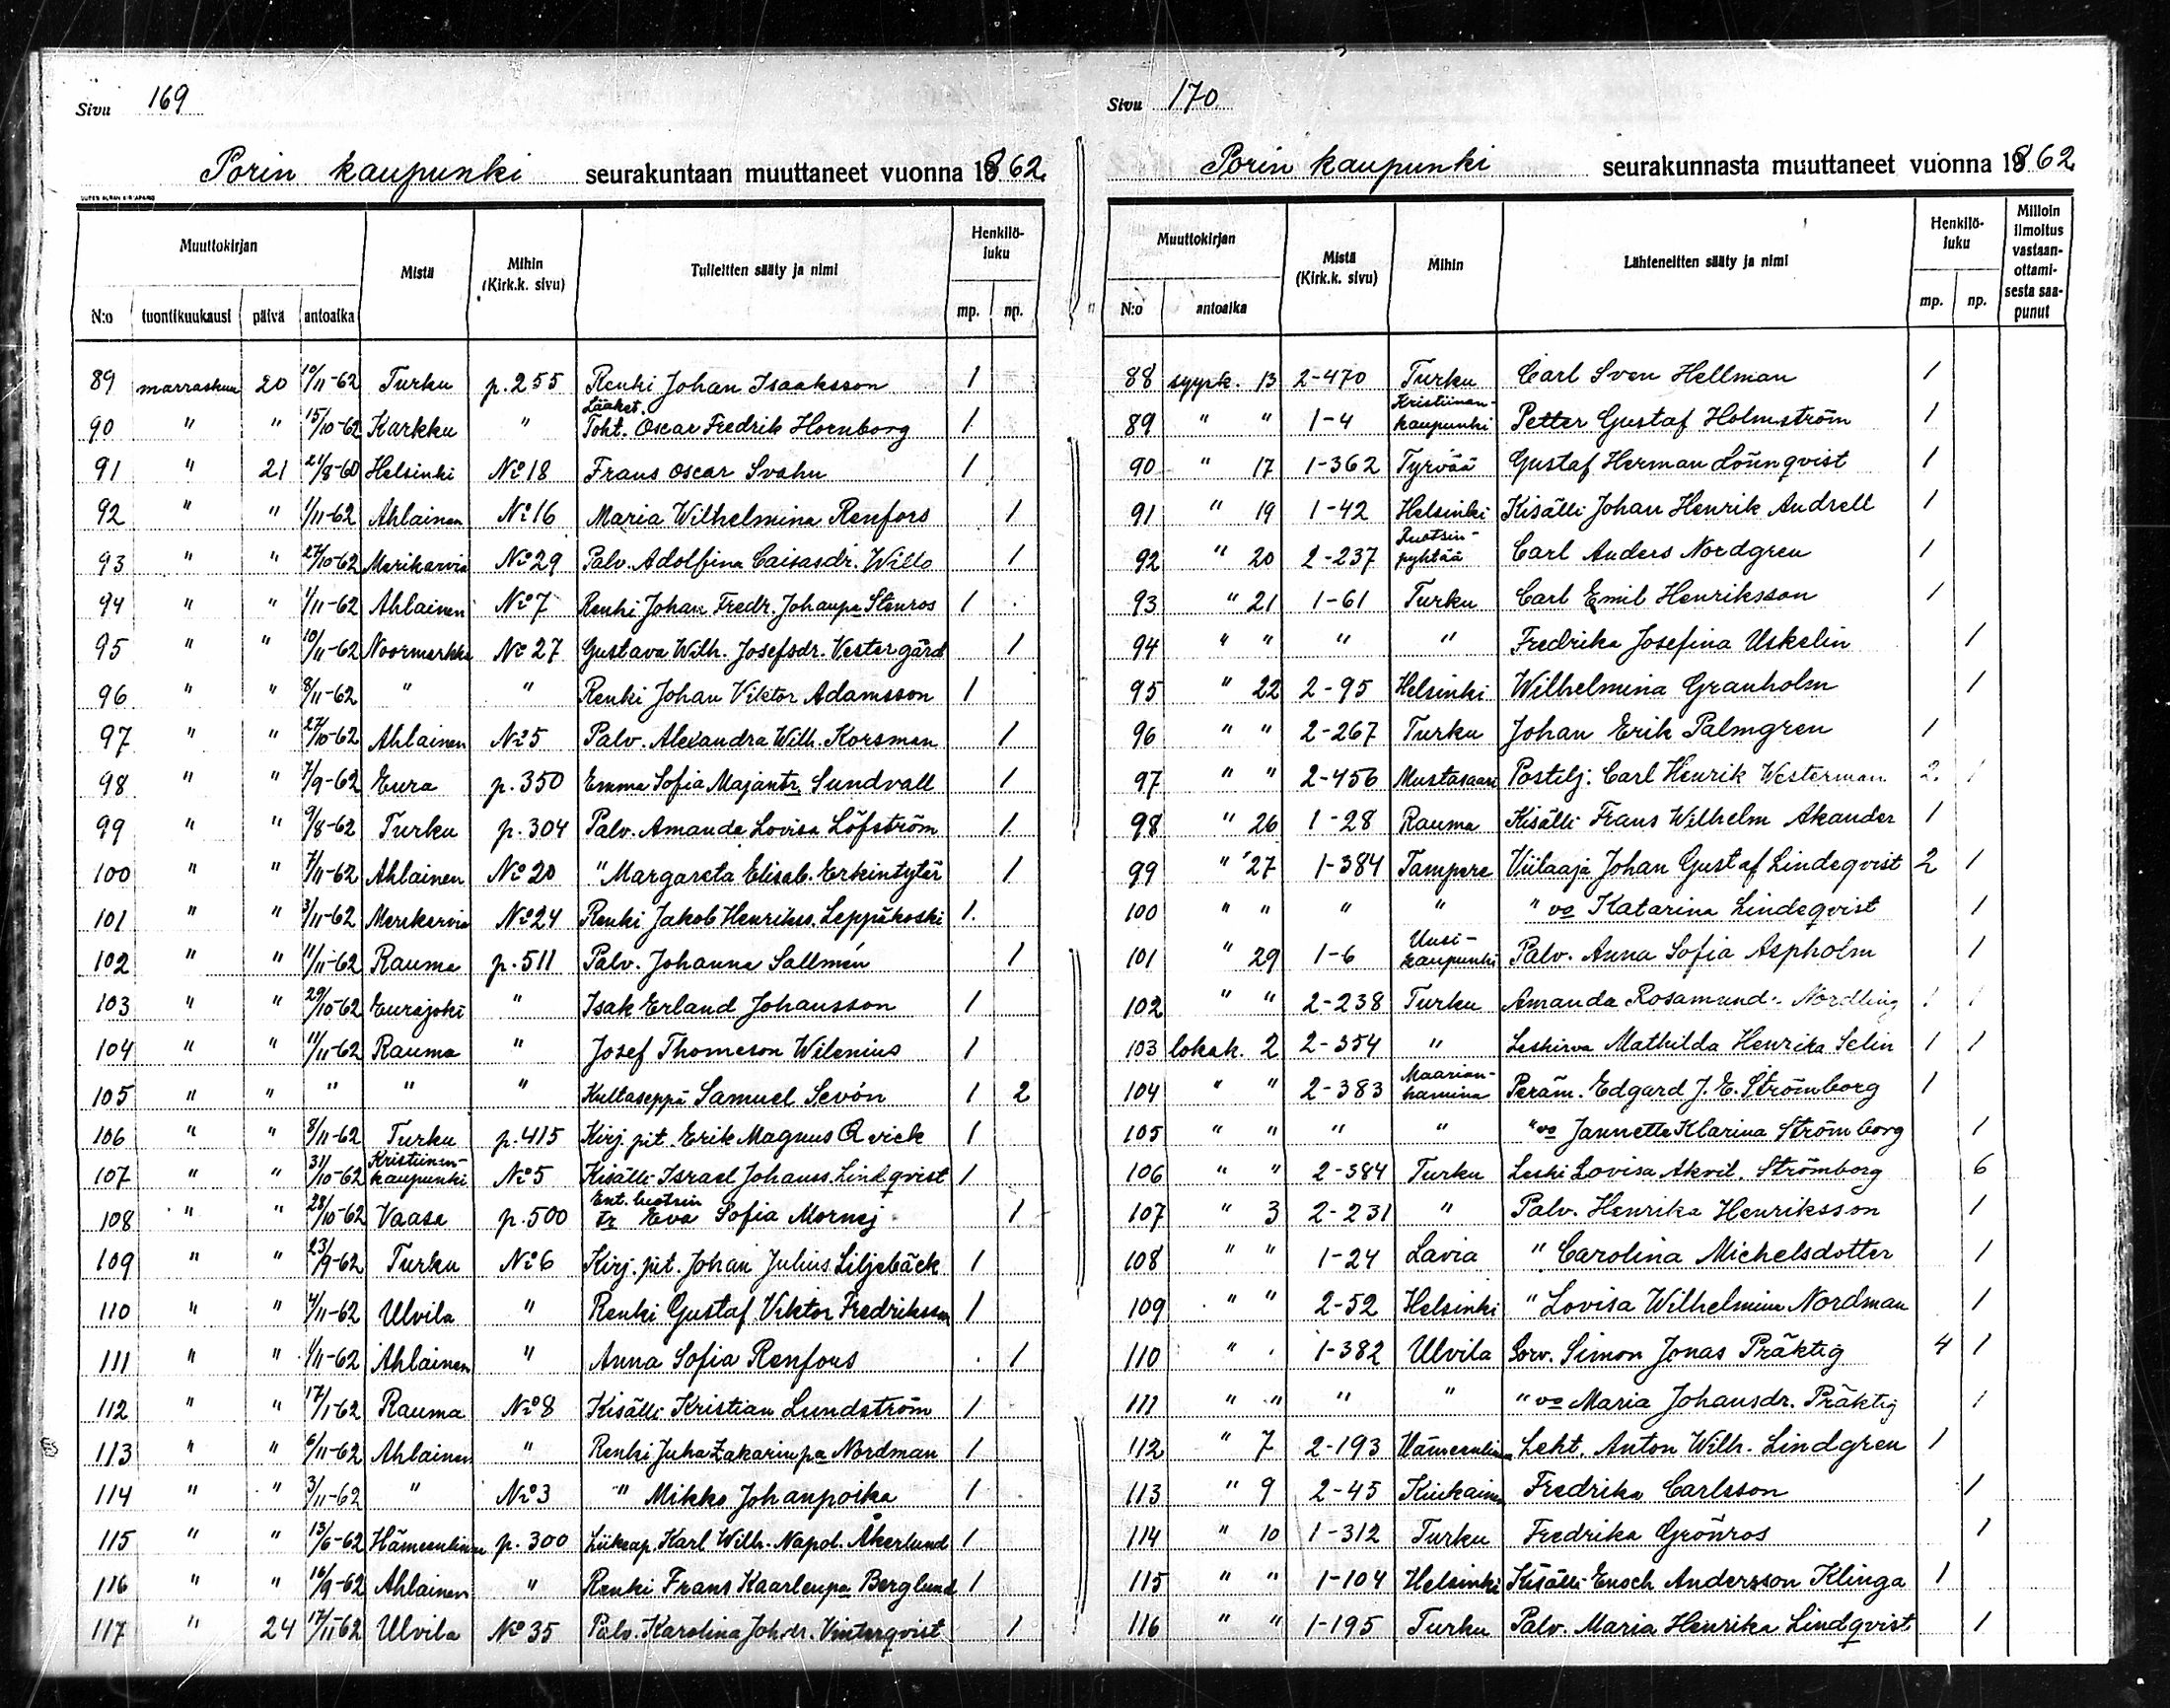 Sivu 169
Porin kaupunki seurakuntaan muuttaneet vuonna 1862.
Muuttokirjan
Mistä
Mihin (Kirk.k. sivu)
Tulleitten sääty ja nimi
Henkilö-luku
N:o tuontikuukausi päivä antoaika mp. np.
89 marraskuu 20 10/11-62 Turku p.255 Renki Johan Isaaksson 1
90 " " 15/10-62 Karkku " Lääket. Toht. Oscar Fredrik Hoenborg 1
91 " 21 21/8-60 Helsinki No 18 Frans Oscar Svahn 1
92 " " 1/11-62 Ahlainen No 16 Maria Wilhelmina Renfors 1
93 " " 27/10-62 Merikarvia No 29 Palv. Adolfina Caisasdr. Willo 1
94 " " 1/11-62 Ahlainen No 7 Renki Johan Fredr. Johanpa Stenros 1
95 " " 10/11-62 Noormarkku No 27 Gustava Wilh. Josefsdr. Vestergård 1
96 " " 8/11-62 " " Renki Johan Viktor Adamsson 1
97 " " 27/10-62 Ahlainen No 5 Palv. Alexandra Wilh. Korsman 1
98 " " 7/9-62 Eura p.350 Emma Sofia Majantr. Sundvall 1
99 " " 9/8-62 Turku p.304 Palv. Amanda Lovisa Löfström 1
100 " " 7/11-62 Ahlainen No 20 " Margareta Elisab. Erkintytär 1
101 " " 3/11-62 Merikarvia No 24 Renki Jakob Henrikss. Leppäkoski 1
102 " " 11/11-62 Rauma p.511 Palv. Johanna Sallmén 1
103 " " 29/10-62 Eurajoki " Isak Erland Johansson 1
104 " " 11/11-62 Rauma " Josef Thomeson Wilenius 1
105 " " " " " Kultaseppä Samuel Sevón 1 2
106 " " 8/11-62 Turku p.415 Kirj. pit. Erik Magnus Qvick 1
107 " " 31/10-62 Kristiinan-kaupunki No 5 Kisälli Israel Johanss. Lindqvist 1
108 " " 28/10-62 Vaasa p.500 Ent. luotsin tr Eva Sofia Mornej 1
109 " " 23/9-62 Turku No 6 Kirj. pit. Johan Julius Liljebäck 1
110 " " 4/11-62 Ulvila " Renki Gustaf Viktor Fredriksson 1
111 " " 1/11-62 Ahlainen " Anna Sofia Renfors 1
112 " " 17/1-62 Rauma No 8 Kisälli Kristian Lundström 1
113 " " 6/11-62 Ahlainen " Renki Juha Zakarinpa Nordman 1
114 " " 3/11-62 " No 3 " Mikko Johanpoika 1
115 " " 13/6-62 Hämeenlinna p.300 Liikeap. Karl Wilh. Napol. Åkerlund 1
116 " " 16/9-62 Ahlainen " Renki Frans Kaarlenpa Berglund 1
117 " 24 17/11-62 Ulvila No 35 Palv. Karolina Joh.dr. Vinterqvist 1
Sivu 170
Porin kaupunki seurakunnasta muuttaneet vuonna 1862
Muuttokirjan
Mistä (Kirk.k. sivu)
Mihin
Lähteneitten sääty ja nimi
Henkilö-luku
Milloin ilmoitus vastaan-ottami-sesta saa-punut
N:o antoaika mp. np.
88 syysk. 13 2-470 Turku Carl Sven Hellman 1
89 " " 1-4 Kristiinan-kaupunki Petter Gustaf Holmström 1
90 " 17 1-362 Tyrvää Gustaf Herman Lönnqvist 1
91 " 19 1-42 Helsinki Kisälli Johan Henrik Andrell 1
92 " 20 2-237 Ruotsin-pyhtää Carl Anders Nordgren 1
93 " 21 1-61 Turku Carl Emil Henriksson 1
94 " " " " Fredrika Josefina Uskelin 1
95 " 22 2-95 Helsinki Wilhelmina Granholm 1
96 " " 2-267 Turku Johan Erik Palmgren 1
97 " " 2-456 Mustasaari Postilj. Carl Henrik Westerman 2 1
98 " 26 1-28 Rauma Kisälli Frans Wilhelm Akander 1
99 " 27 1-384 Tampere Viilaaja Johan Gustaf Lindeqvist 2 1
100 " " " " " vo Katarina Lindeqvist 1
101 " 29 1-6 Uusi-kaupunki Palv. Anna Sofia Aspholm 1
102 " " 2-238 Turku Amanda Rosamund. Nordling 1 1
103 lokak. 2 2-354 " Leskirva Mathilda Henrika Selin 1 1
104 " " 2-383 Maarian-hamina Peräm. Edgard J. E. Strömborg 1
105 " " " " " vo Jannette Klarina Strömborg 1
106 " " 2-384 Turku Leski Lovisa Akvil. Strömborg 6
107 " 3 2-231 " Palv. Henrika Henriksson 1
108 " " 1-24 Lavia " Carolina Michelsdotter 1
109 " " 2-52 Helsinki " Lovisa Wilhelmina Nordman 1
110 " . 1-382 Ulvila Sorv. Simon Jonas Präktig 4 1
111 " " " " " vo Maria Johansdr. Präktig 1
112 " 7 2-193 Hämeenlinna Leht. Anton Wilh. Lindgren 1
113 " 9 2-45 Kiukainen Fredrika Carlsson 1
114 " 10 1-312 Turku Fredrika Grönros 1
115 " " 1-104 Helsinki Kisälli Enoch Andersson Klinga 1
116 " " 1-195 Turku Palv. Maria Henrika Lindqvist 1